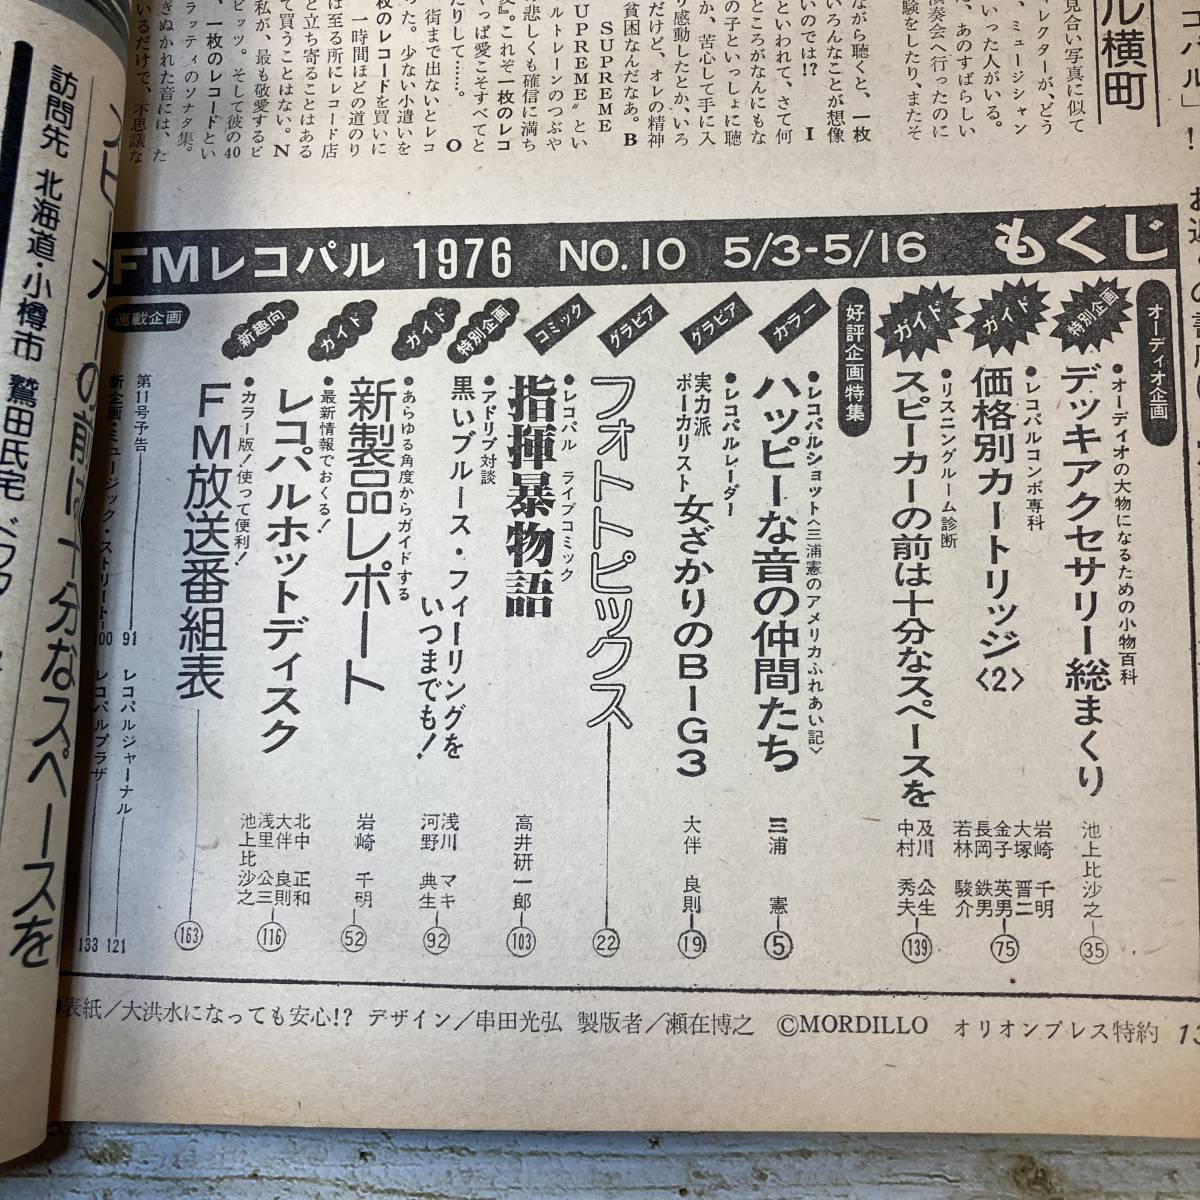 ル横町
見合い写真に似て
ィレクターが、どう
、ミュージシャン
いった人がいる。
、あのすばらしい
演奏会へ行ったのに
験をしたり、またそ
ながら聴くと、一枚
いろんなことが想像
いのでは!? I
ところがなんにもな
といわれて、さて何
の子といっしょに聴
か、苦心して手に入
り感動したとか、いろ
だけど、オレの精神
貧困なんだなあ。B
SUPREME
UPREME〟とい
ルトレーンのつぶや
悲しくも確信に満ち
愛』。これぞ一枚のレコ
くっぱ愛こそすべてと
たりして……。O
街まで出ないとレコ
った。少ない小遣いを
枚のレコードを買いに
一時間ほどの道のり
は至る所にレコード店
と立ち寄ることはある
て買うことはない。N
私が、最も敬愛するピ
ビッツ。そして彼の40
ラッティのソナタ集。
、一枚のレコードとい
ぎぬかれた音には、た
いるだけで、不思議な
FMレコパル 1976 NO.10 5/3-5/16 もくじ
オーディオ企画
特別企画
●オーディオの大物になるための小物百科
デッキアクセサリー総まくり
池上比沙之
35
ガイド
●レコパルコンポ専科
価格別カートリッジ〈2〉
岩崎 千明
大塚 晋二
金子 英男
長岡 鉄男
若林 駿介
75
ガイド
●リスニングルーム診断
スピーカーの前は十分なスペースを
及川 公生
中村 秀夫
139
好評企画特集
カラー
●レコパルショット〈三浦憲のアメリカふれあい記〉
ハッピーな音の仲間たち
三浦 憲
5
グラビア
●レコパルレーダー
実力派ボーカリスト 女ざかりのBIG3
大伴 良則
19
グラビア
フォトトピックス
22
コミック
●レコパル ライブコミック
指揮暴物語
高井研一郎
103
特別企画
●アドリブ対談
黒いブルース・フィーリングを
いつまでも!
浅川 マキ
河野 典生
92
ガイド
●あらゆる角度からガイドする
新製品レポート
岩崎 千明
52
ガイド
●最新情報でおくる!
レコパルホットディスク
北中 正和
大伴 良則
浅里 公三
池上比沙之
116
新趣向
●カラー版!使って便利!
FM放送番組表
163
連載企画
第11号予告 91
新企画・ミュージック・ストリート 100
レコパルジャーナル 121
レコパルプラザ 133
●表紙/大洪水になっても安心!? デザイン/串田光弘 製版者/瀬在博之 ©MORDILLO オリオンプレス特約
スピーカーの前は十分なスペースを
訪問先 北海道・小樽市 鷲田氏宅